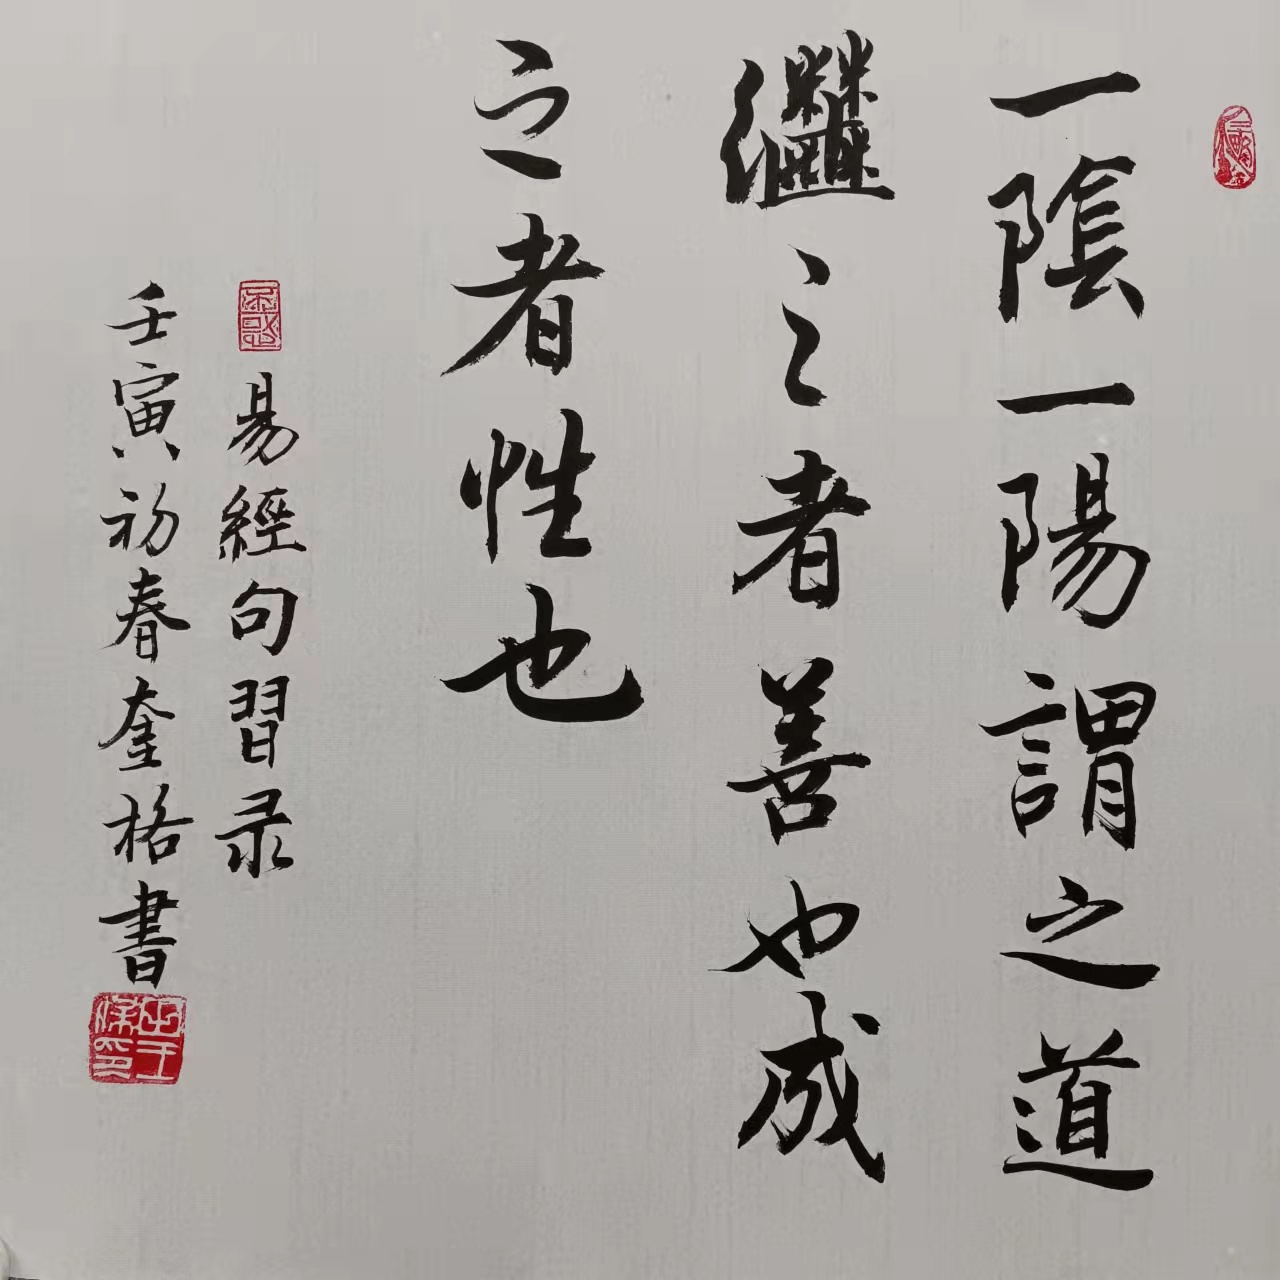 一陰一陽謂之道
繼之者善也成
之者性也
易經句習录
壬寅初春奎格書
不惑